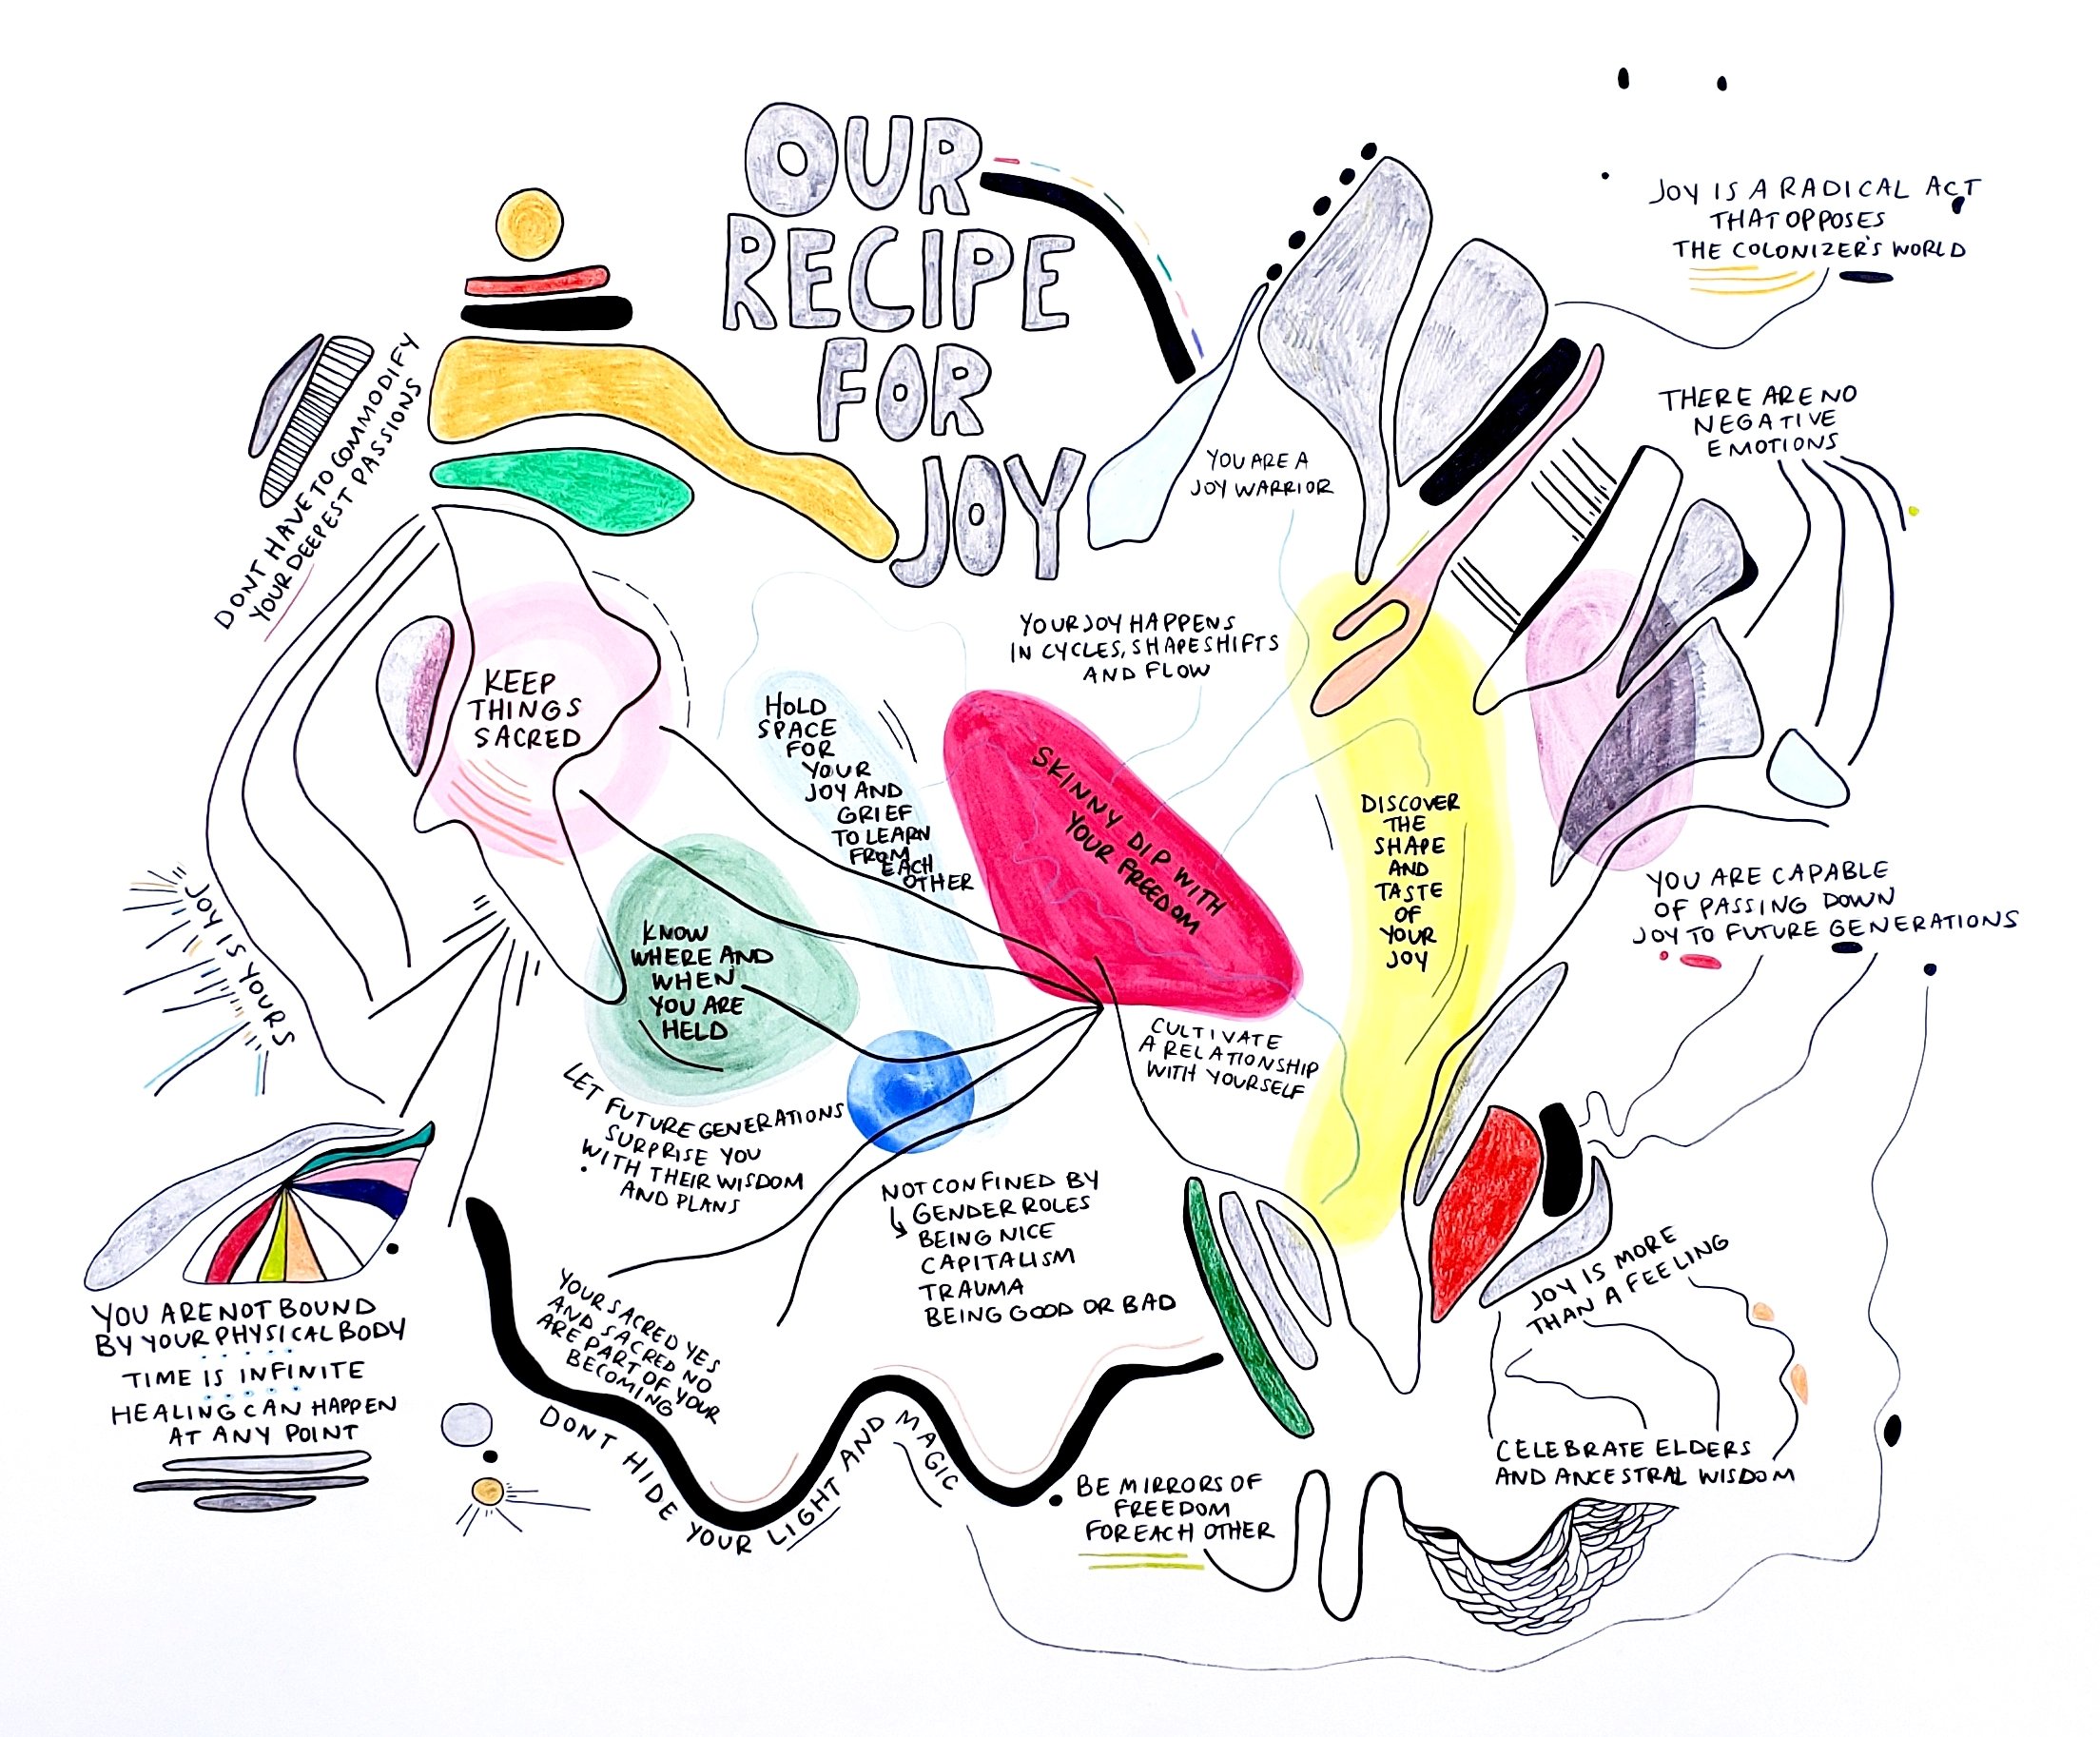 OUR
RECIPE
FOR
JOY
JOY IS A RADICAL ACT
THAT OPPOSES
THE COLONIZER'S WORLD
DONT HAVE TO COMMODIFY
YOUR DEEPEST PASSIONS
THERE ARE NO
NEGATIVE
EMOTIONS
YOU ARE A
JOY WARRIOR
YOUR JOY HAPPENS
IN CYCLES, SHAPESHIFTS
AND FLOW
KEEP
THINGS
SACRED
HOLD
SPACE
FOR
YOUR
JOY AND
GRIEF
TO LEARN
FROM
EACH
OTHER
SKINNY DIP WITH
YOUR FREEDOM
DISCOVER
THE
SHAPE
AND
TASTE
OF
YOUR
JOY
YOU ARE CAPABLE
OF PASSING DOWN
JOY TO FUTURE GENERATIONS
JOY IS YOURS
KNOW
WHERE AND
WHEN
YOU ARE
HELD
CULTIVATE
A RELATIONSHIP
WITH YOURSELF
LET FUTURE GENERATIONS
SURPRISE YOU
WITH THEIR WISDOM
AND PLANS
NOT CONFINED BY
GENDER ROLES
BEING NICE
CAPITALISM
TRAUMA
BEING GOOD OR BAD
JOY IS MORE
THAN A FEELING
YOU ARE NOT BOUND
BY YOUR PHYSICAL BODY
TIME IS INFINITE
HEALING CAN HAPPEN
AT ANY POINT
YOUR SACRED YES
AND SACRED NO
ARE PART OF YOUR
BECOMING
DONT HIDE YOUR LIGHT AND MAGIC
CELEBRATE ELDERS
AND ANCESTRAL WISDOM
BE MIRRORS OF
FREEDOM
FOR EACH OTHER